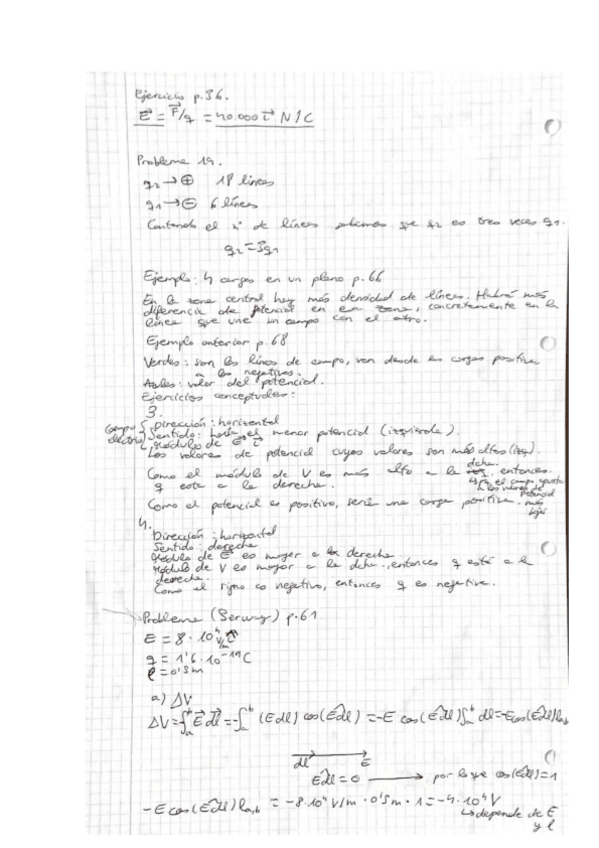 Ejercicio p.36.
E⃗ = F⃗/q = 40.000 i⃗ N/C
Problema 19.
q₂ → ⊕ 18 líneas
q₁ → ⊖ 6 líneas
Contando el nº de líneas sabemos que q₂ es tres veces q₁.
q₂ = 3q₁
Ejemplo: 4 cargas en un plano p.66
En la zona central hay más densidad de líneas. Habrá más
diferencia de potencial en esa zona, concretamente en la
línea que une un campo con el otro.
Ejemplo anterior p.68
Verdes: son las líneas de campo, van desde las cargas positivas
a las negativas.
Azules: valor del potencial.
Ejercicios conceptuales:
3.
Campo eléctrico { Dirección: horizontal
Sentido: hacia el menor potencial (izquierda).
Módulo de E⃗
Los valores de potencial cuyos valores son más altos (izq).
Como el módulo de V es más alto a la dcha. entonces
q está a la derecha.
↳ el campo apunta a los valores de potencial más bajos
Como el potencial es positivo, será una carga positiva.
4.
Dirección: horizontal
Sentido: derecha
Módulo de E⃗ es mayor a la derecha.
Módulo de V es mayor a la dcha., entonces q está a la
derecha.
Como el signo es negativo, entonces q es negativa.
Problema (Serway) p.61
E = 8·10⁴ V/m
q = 1'6·10⁻¹⁹ C
l = 0'5m
a) ΔV
ΔV = -∫ₐᵇ E⃗ dl⃗ = -∫ₐᵇ (E dl) cos(Edl) = -E cos(Edl) ∫ₐᵇ dl = -E cos(Edl) lₐ,ᵦ
dl⃗ E⃗
Edl = 0 → por lo que cos(Edl) = 1
-E cos(Edl) lₐ,ᵦ = -8·10⁴ V/m · 0'5m · 1 = -4·10⁴ V
↳ depende de E
y l